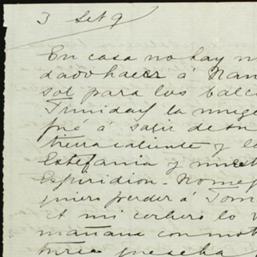 3 Set 9
En casa no hay m
dado hacer á Nan
sol para los balco
Trinidad la muge
fué á salir de su
tierra caliente y l
Estefania y
Espiridion - No me
quiere perder á Tom
A mi
mañana con mot